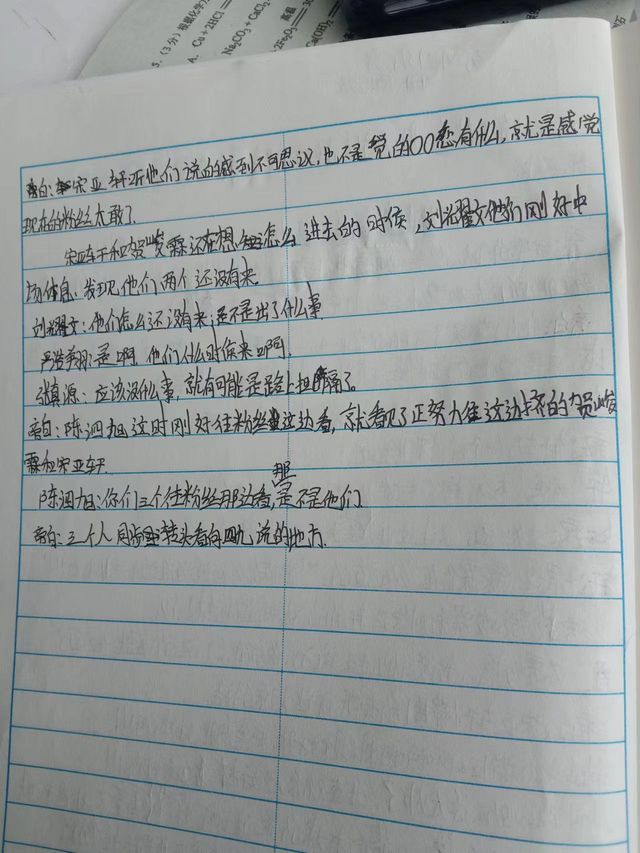 5. (3分) 根据化学方
A. Cu+2HCl
Na₂CO₃+CaCl₂
高温
2Fe₂O₃
旁白:宋亚轩听他们说的感到不可思议,也不是觉的〇〇恋有什么,就是感觉
现在的粉丝太敢了
宋亚轩和贺峻霖还在想怎么进去的时候,刘耀文他们刚好中
场休息,发现他们两个还没有来
刘耀文:他们怎么还没有来,是不是出了什么事
严浩翔:是啊,他们什么时侯来啊
张真源:应该没什么事,就有可能是路上担隔了。
旁白:陈泗旭这时刚好往粉丝这边看,就看见了正努力往这边挤的贺峻
霖和宋亚轩
陈泗旭:你们三个往粉丝那边看,那是不是他们
旁白:三个人同步转头看向四九说的地方